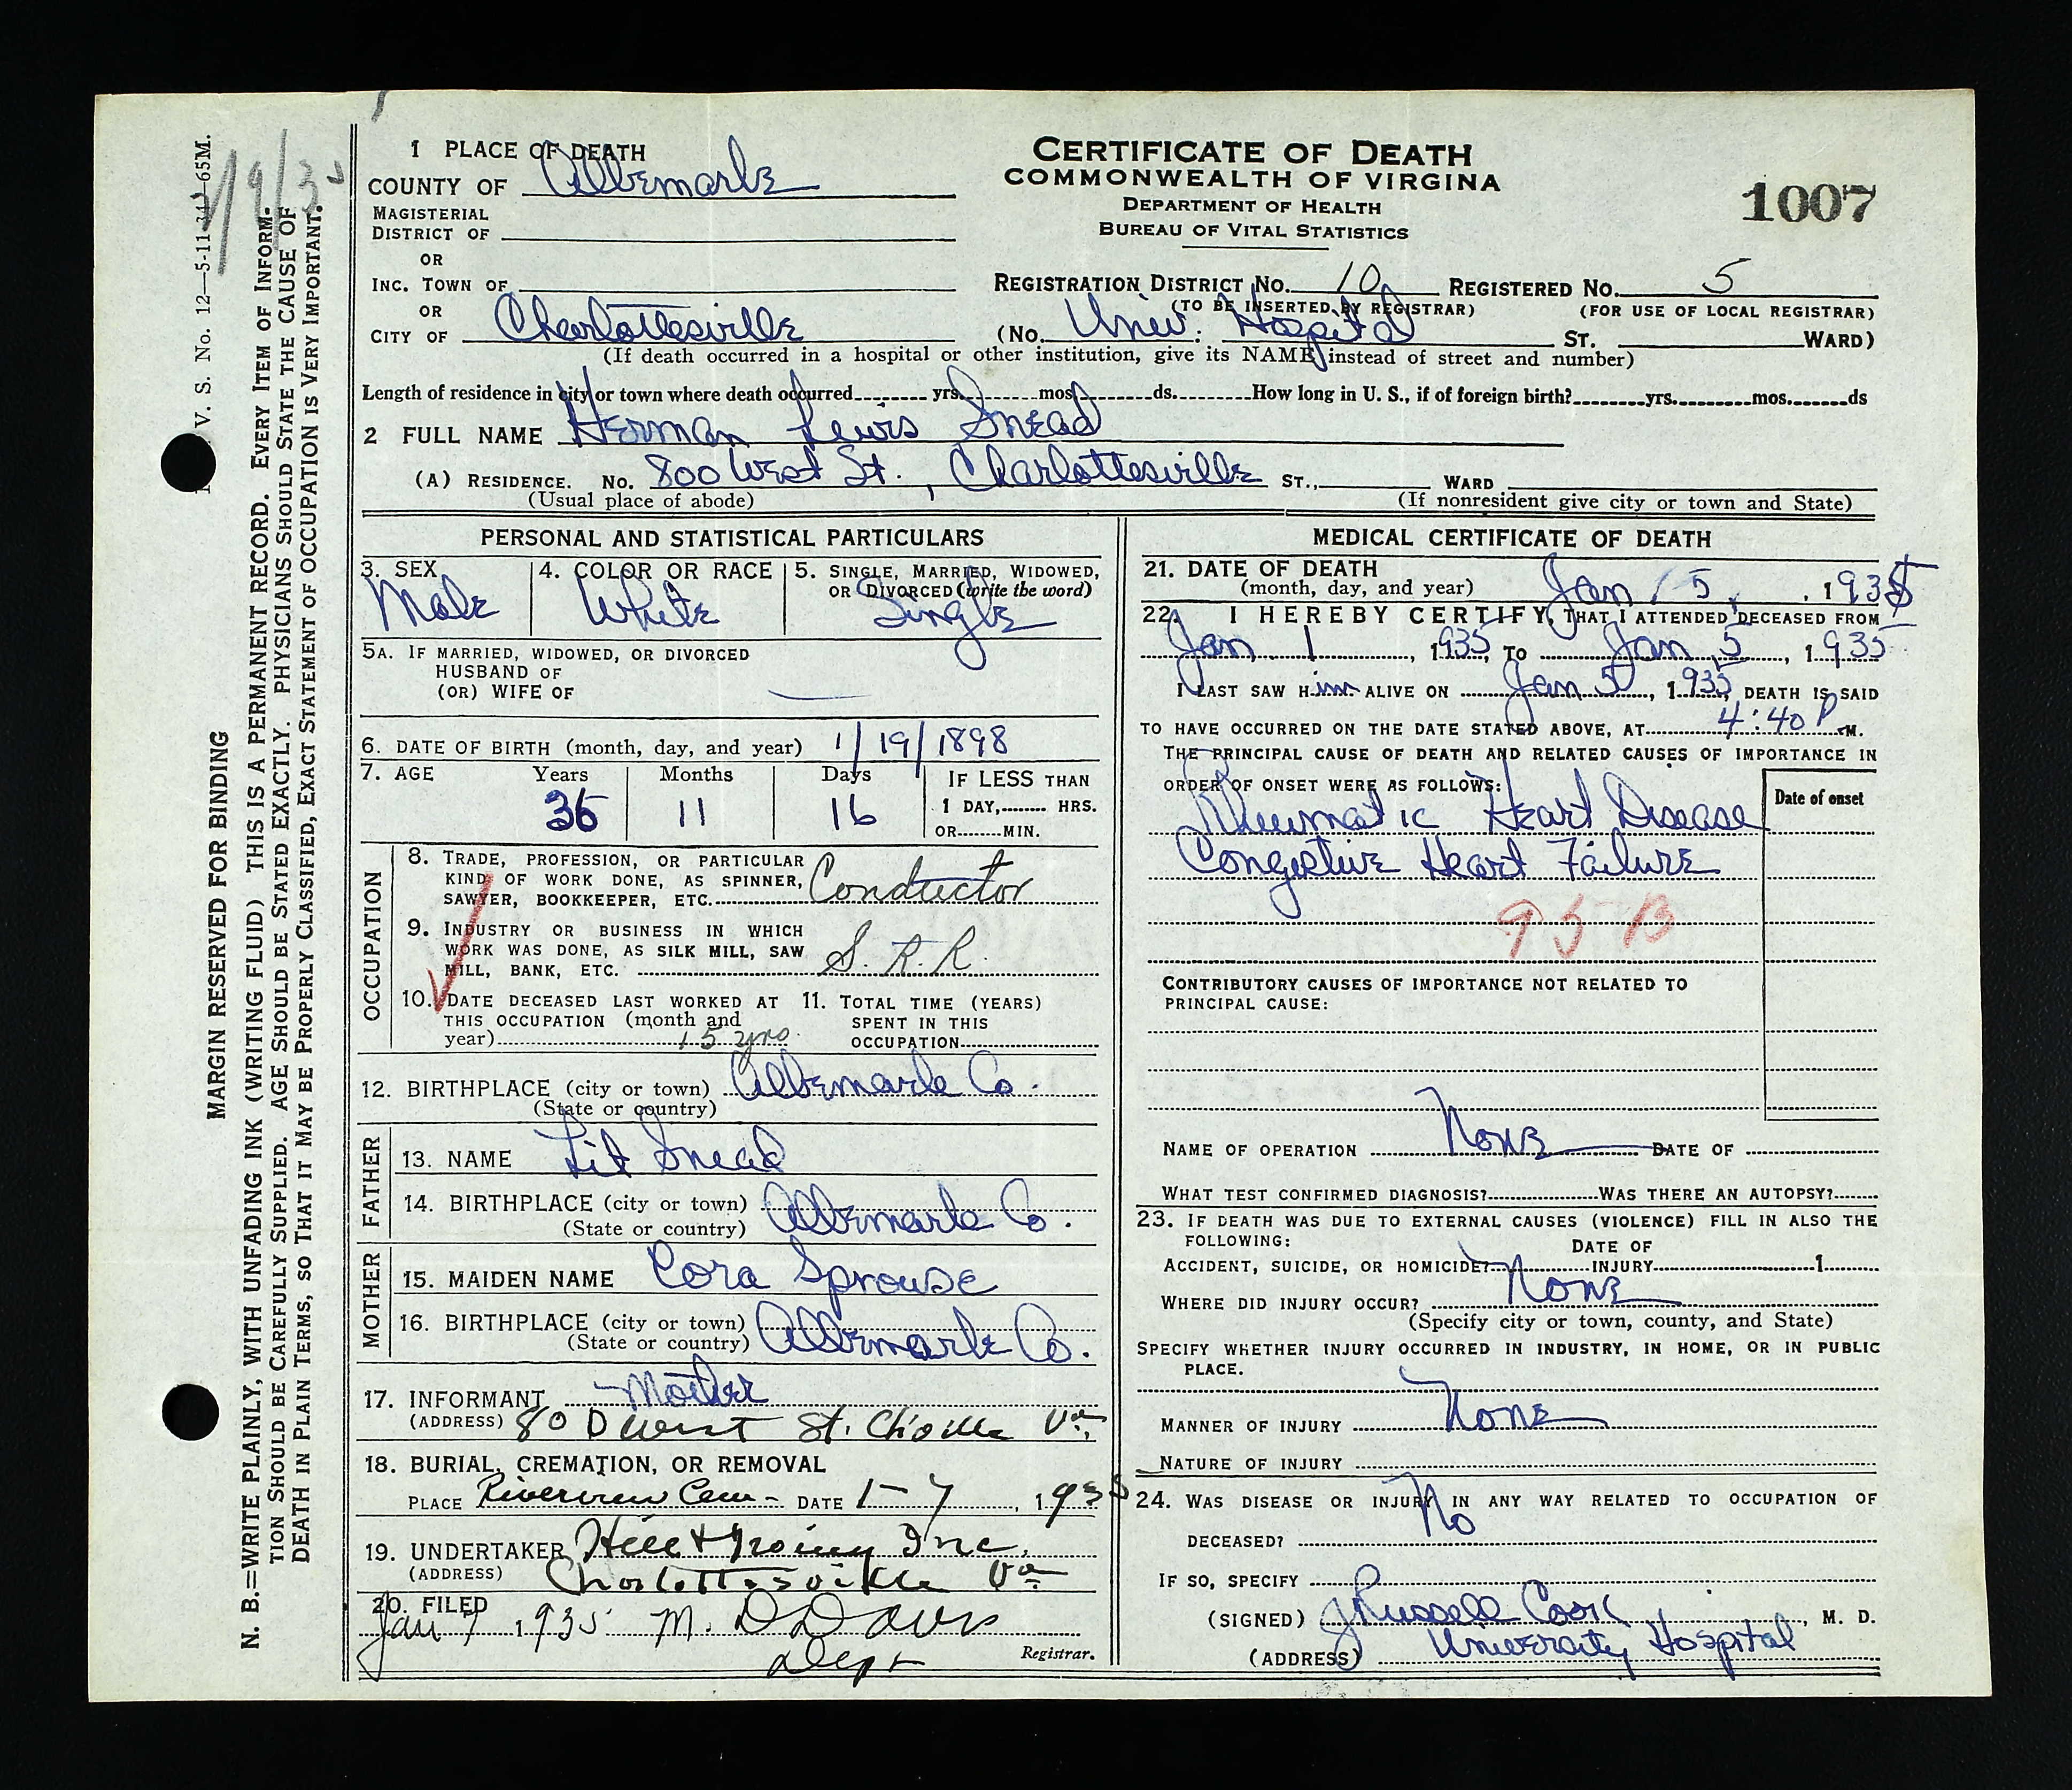 1 PLACE OF DEATH
COUNTY OF Albemarle
MAGISTERIAL
DISTRICT OF
OR
INC. TOWN OF
OR
CITY OF Charlottesville
CERTIFICATE OF DEATH
COMMONWEALTH OF VIRGINA
DEPARTMENT OF HEALTH
BUREAU OF VITAL STATISTICS
1007
REGISTRATION DISTRICT NO. 10 REGISTERED NO. 5
(TO BE INSERTED BY REGISTRAR) (FOR USE OF LOCAL REGISTRAR)
(No. Univ. Hospital ST. WARD)
(If death occurred in a hospital or other institution, give its NAME instead of street and number)
Length of residence in city or town where death occurred yrs. mos. ds. How long in U. S., if of foreign birth? yrs. mos. ds
2 FULL NAME Herman Lewis Snead
(A) RESIDENCE. No. 800 West St., Charlottesville ST., WARD
(Usual place of abode) (If nonresident give city or town and State)
PERSONAL AND STATISTICAL PARTICULARS
3. SEX 4. COLOR OR RACE 5. SINGLE, MARRIED, WIDOWED,
OR DIVORCED (write the word)
Male White Single
5A. IF MARRIED, WIDOWED, OR DIVORCED
HUSBAND OF
(OR) WIFE OF
6. DATE OF BIRTH (month, day, and year) 1/19/1898
7. AGE Years Months Days IF LESS THAN
36 11 16 1 DAY, HRS.
OR MIN.
OCCUPATION
8. TRADE, PROFESSION, OR PARTICULAR
KIND OF WORK DONE, AS SPINNER,
SAWYER, BOOKKEEPER, ETC. Conductor
9. INDUSTRY OR BUSINESS IN WHICH
WORK WAS DONE, AS SILK MILL, SAW
MILL, BANK, ETC. S. R. R.
10. DATE DECEASED LAST WORKED AT 11. TOTAL TIME (YEARS)
THIS OCCUPATION (month and SPENT IN THIS
year) 15 yrs. OCCUPATION
12. BIRTHPLACE (city or town) Albemarle Co.
(State or country)
FATHER
13. NAME Lit Snead
14. BIRTHPLACE (city or town) Albemarle Co.
(State or country)
MOTHER
15. MAIDEN NAME Cora Sprouse
16. BIRTHPLACE (city or town) Albemarle Co.
(State or country)
17. INFORMANT Mother
(ADDRESS) 800 West St. Ch'ville Va.
18. BURIAL, CREMATION, OR REMOVAL
PLACE Riverview Cem- DATE 1-7, 1935
19. UNDERTAKER Hill & Irving Inc.
(ADDRESS) Charlottesville Va
20. FILED
Jan 7 1935 M. D Davis
Dept Registrar.
MEDICAL CERTIFICATE OF DEATH
21. DATE OF DEATH
(month, day, and year) Jan 5, 1935
22. I HEREBY CERTIFY, THAT I ATTENDED DECEASED FROM
Jan 1, 1935, TO Jan 5, 1935
I LAST SAW Him ALIVE ON Jan 5, 1935, DEATH IS SAID
TO HAVE OCCURRED ON THE DATE STATED ABOVE, AT 4:40 P M.
THE PRINCIPAL CAUSE OF DEATH AND RELATED CAUSES OF IMPORTANCE IN
ORDER OF ONSET WERE AS FOLLOWS: Date of onset
Rheumatic Heart Disease
Congestive Heart Failure
95 B
CONTRIBUTORY CAUSES OF IMPORTANCE NOT RELATED TO
PRINCIPAL CAUSE:
NAME OF OPERATION None DATE OF
WHAT TEST CONFIRMED DIAGNOSIS? WAS THERE AN AUTOPSY?
23. IF DEATH WAS DUE TO EXTERNAL CAUSES (VIOLENCE) FILL IN ALSO THE
FOLLOWING: DATE OF
ACCIDENT, SUICIDE, OR HOMICIDE? INJURY 1
WHERE DID INJURY OCCUR? None
(Specify city or town, county, and State)
SPECIFY WHETHER INJURY OCCURRED IN INDUSTRY, IN HOME, OR IN PUBLIC
PLACE.
MANNER OF INJURY None
NATURE OF INJURY
24. WAS DISEASE OR INJURY IN ANY WAY RELATED TO OCCUPATION OF
DECEASED? No
IF SO, SPECIFY
(SIGNED) J Russell Cook, M. D.
(ADDRESS) University Hospital
V. S. No. 12—5-11-34—65M.
1/9/35
MARGIN RESERVED FOR BINDING
N. B.=WRITE PLAINLY, WITH UNFADING INK (WRITING FLUID) THIS IS A PERMANENT RECORD. EVERY ITEM OF INFORM-
TION SHOULD BE CAREFULLY SUPPLIED. AGE SHOULD BE STATED EXACTLY. PHYSICIANS SHOULD STATE THE CAUSE OF
DEATH IN PLAIN TERMS, SO THAT IT MAY BE PROPERLY CLASSIFIED, EXACT STATEMENT OF OCCUPATION IS VERY IMPORTANT.